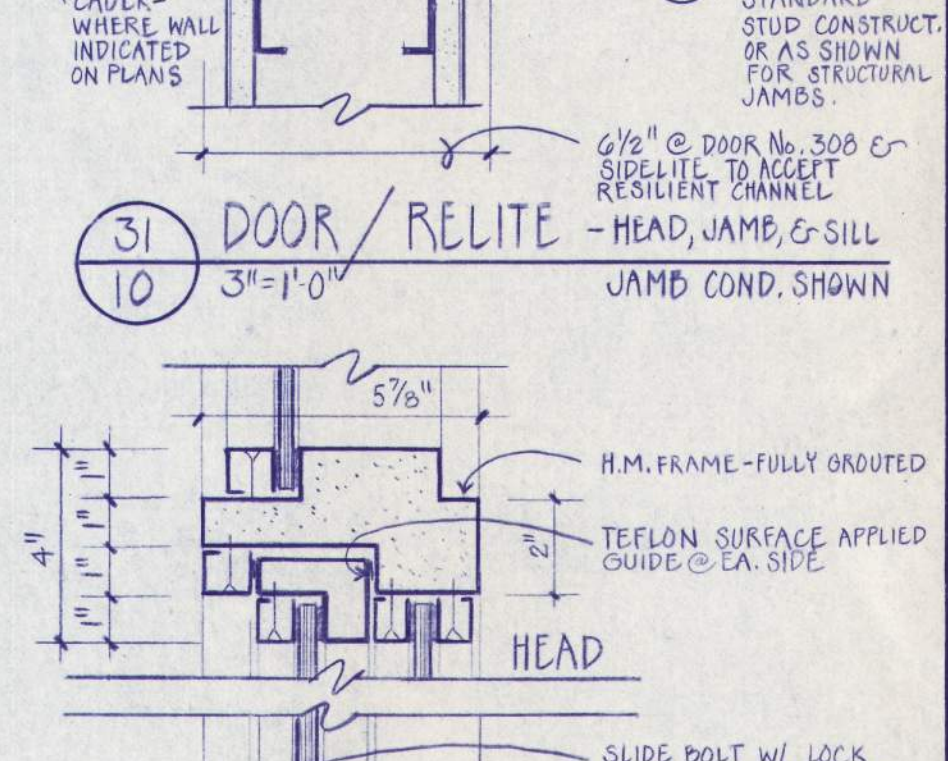 CAULK-
WHERE WALL
INDICATED
ON PLANS
STANDARD
STUD CONSTRUCT.
OR AS SHOWN
FOR STRUCTURAL
JAMBS.
6 1/2" @ DOOR No. 308 &
SIDELITE TO ACCEPT
RESILIENT CHANNEL
31
10
DOOR / RELITE - HEAD, JAMB, & SILL
3"=1'-0" JAMB COND. SHOWN
5 7/8"
H.M. FRAME-FULLY GROUTED
TEFLON SURFACE APPLIED
GUIDE @ EA. SIDE
4"
1"
1"
1"
1"
2"
HEAD
SLIDE BOLT W/ LOCK